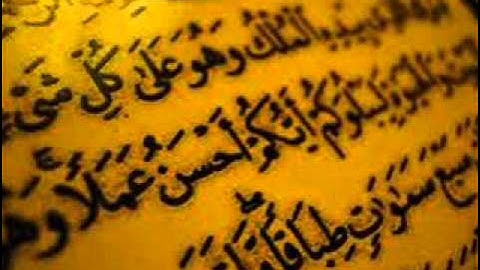 بيده الملك وهو على كل شئ
والحيوة ليبلوكم ايكم احسن عملا وهو
سبع سموات طباقا